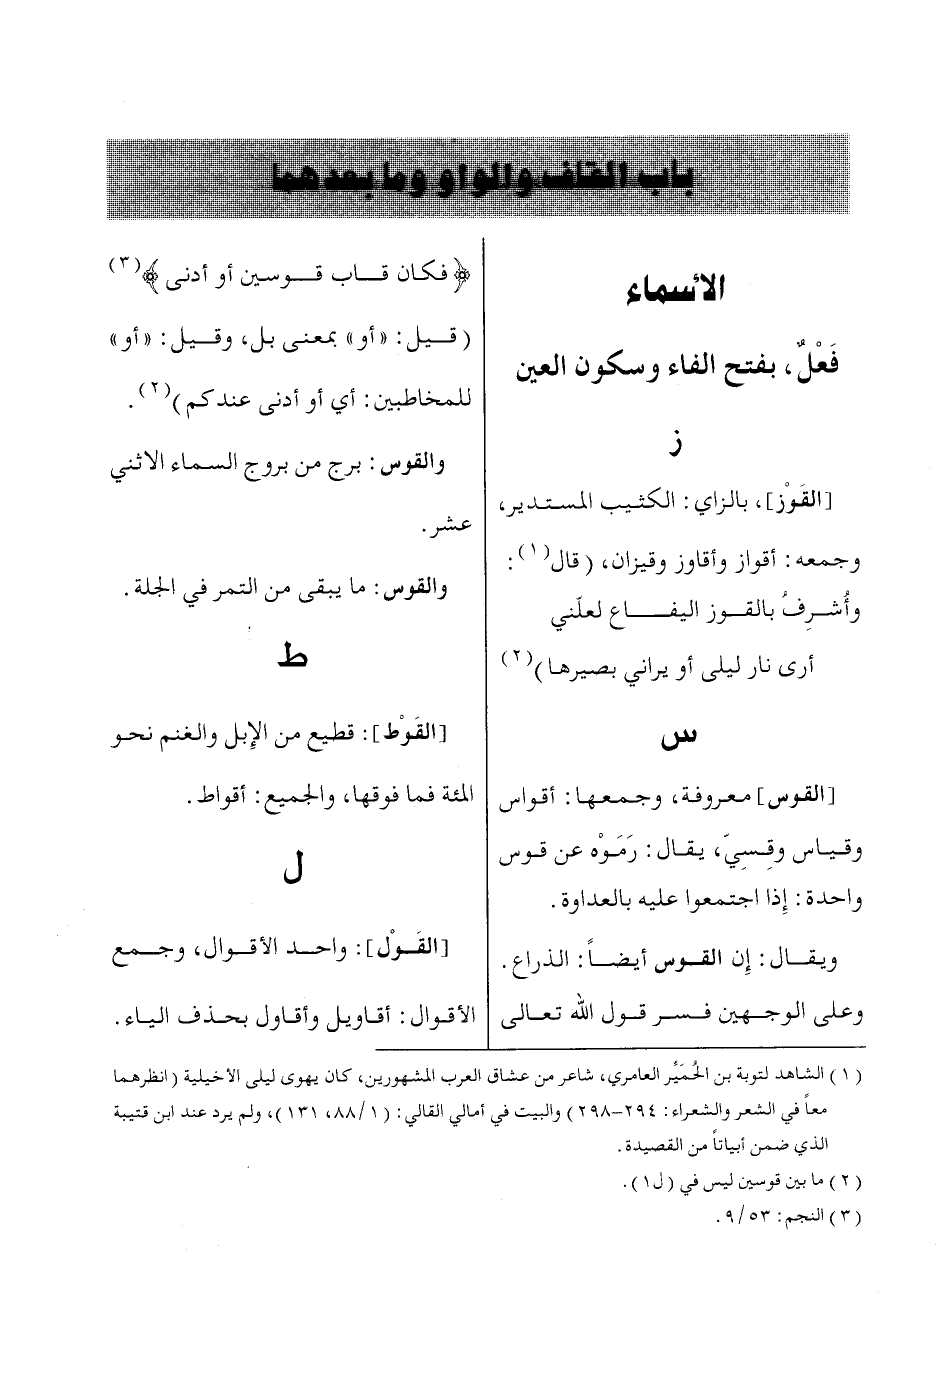 باب القاف والواو وما بعدهما
الأسماء
فَعْلٌ، بفتح الفاء وسكون العين
ز
[القَوْز]، بالزاي: الكثيب المستدير،
وجمعه: أقواز وأقاوز وقيزان، (قال(١):
وأُشرِفُ بالقوز اليفاع لعلّني
أرى نار ليلى أو يراني بصيرها)(٢)
س
[القوس] معروفة، وجمعها: أقواس
وقياس وقِسِيّ، يقال: رَمَوْه عن قوس
واحدة: إذا اجتمعوا عليه بالعداوة.
ويقال: إن القوس أيضاً: الذراع.
وعلى الوجهين فسر قول الله تعالى
﴿فكان قاب قوسين أو أدنى﴾(٣)
(قيل: «أو» بمعنى بل، وقيل: «أو»
للمخاطبين: أي أو أدنى عندكم)(٢).
والقوس: برج من بروج السماء الاثني
عشر.
والقوس: ما يبقى من التمر في الجلة.
ط
[القَوْط]: قطيع من الإبل والغنم نحو
المئة فما فوقها، والجميع: أقواط.
ل
[القَوْل]: واحد الأقوال، وجمع
الأقوال: أقاويل وأقاول بحذف الياء.
(١) الشاهد لتوبة بن الحُمَيِّر العامري، شاعر من عشاق العرب المشهورين، كان يهوى ليلى الأخيلية (انظرهما
معاً في الشعر والشعراء: ٢٩٤-٢٩٨) والبيت في أمالي القالي: (١/٨٨، ١٣١)، ولم يرد عند ابن قتيبة
الذي ضمن أبياتاً من القصيدة.
(٢) ما بين قوسين ليس في (ل١).
(٣) النجم: ٥٣/٩.